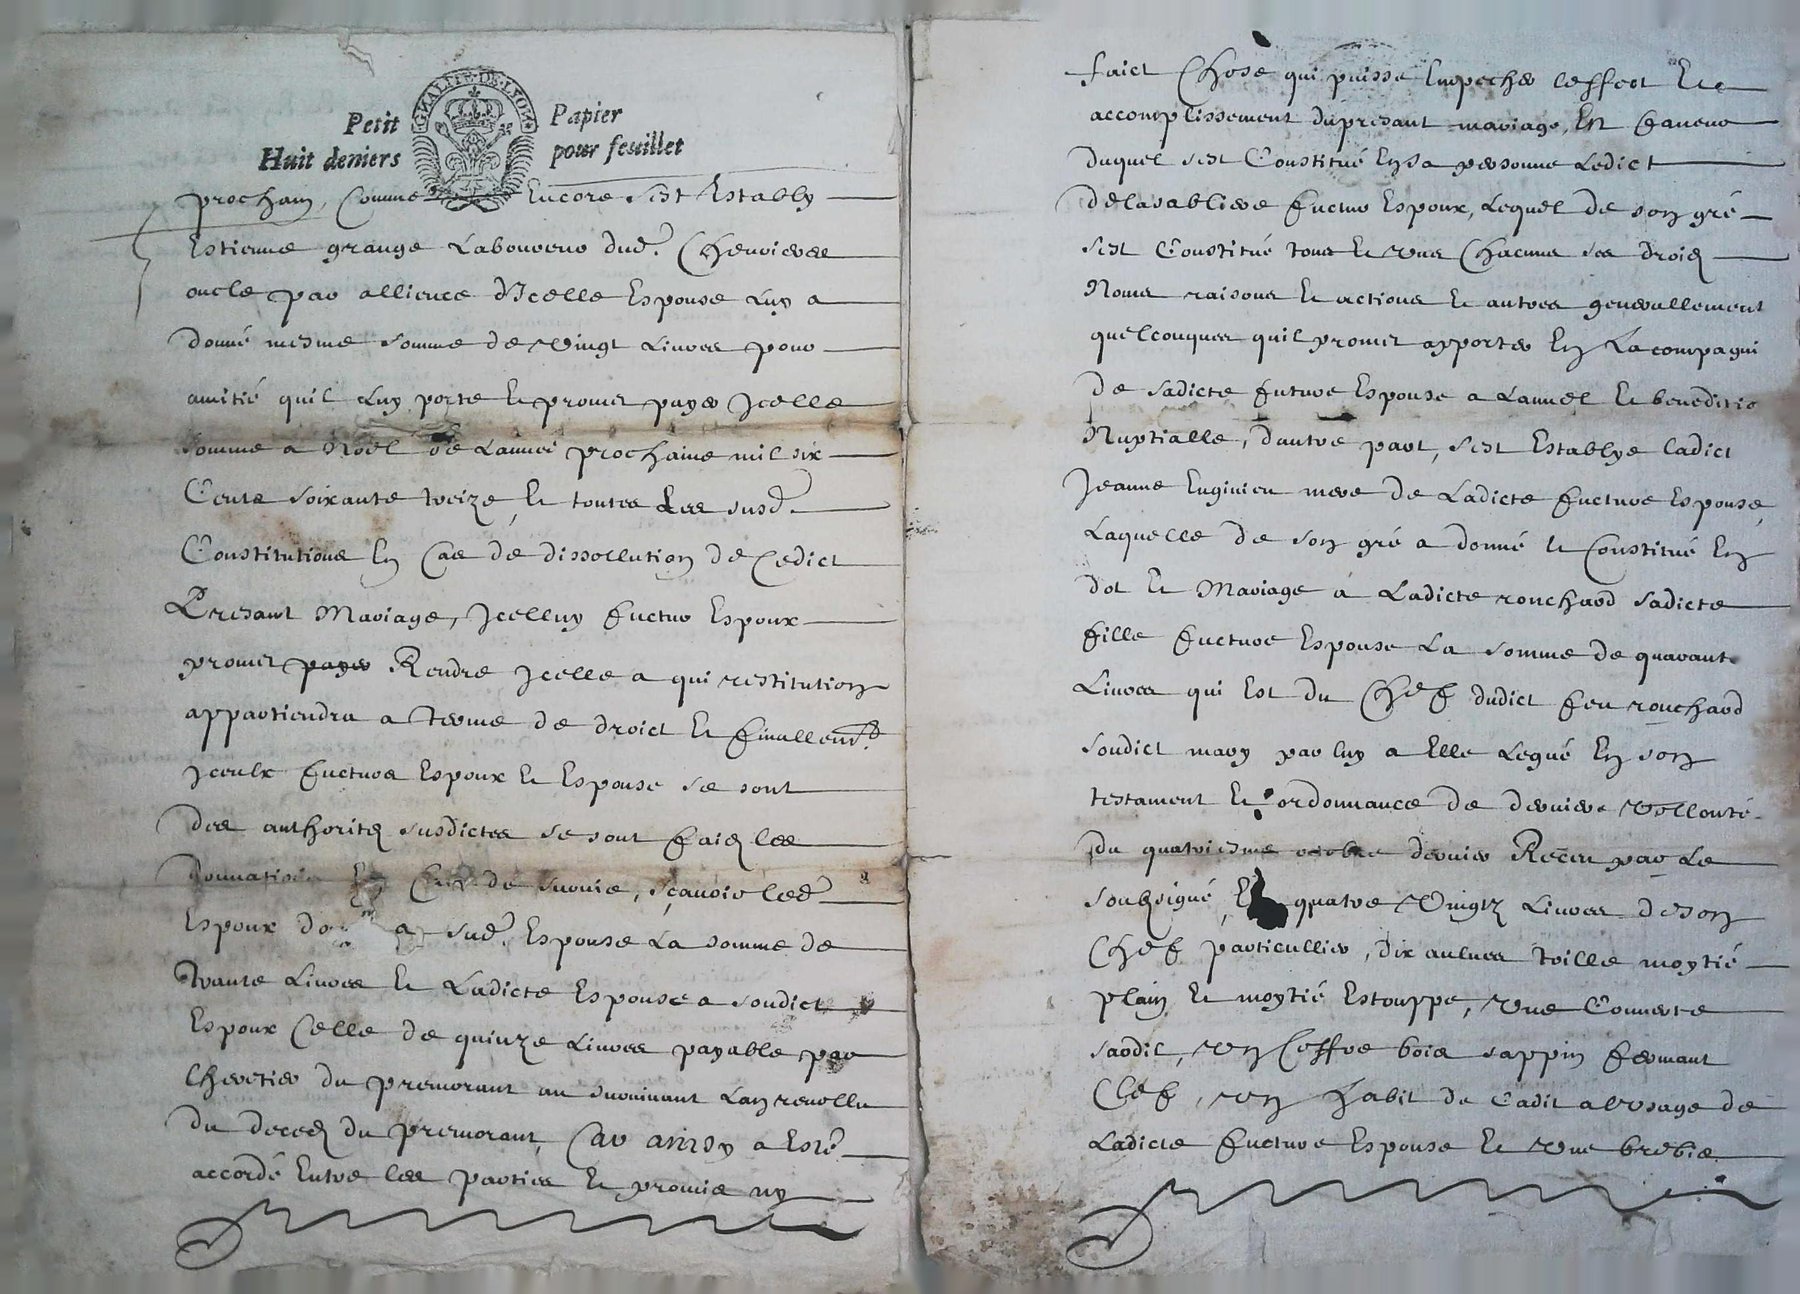 GNALITE·DE·LYON
Petit Papier
Huit deniers pour feuillet
prochain, Comme Encore s'est Estably
Estienne grange Laboureur dud. Chenvieres
oncle par allience d'Icelle Espouse Luy a
donné mesme somme de Vingt Livres pour
amitié quil Luy porte Et promet payer Icelle
somme a Noel de Lannei prochaine mil six
Cents soixante treize, Et toutes Les susd.
Constitutions En Cas de dissollution de Cedict
Presant Mariage, Icelluy fuctur Espoux
promet payer Rendre Icelle a qui restitution
appartiendra a Terme de droict Et finallemt.
Iceulx fucturs Espoux Et Espouse se sont
des authorités susdictes se sont faicts les
donnations En Cas de survie, sçavoir led.
Espoux a sad. Espouse La somme de
Trante Livres Et Ladicte Espouse a soudict
Espoux Celle de quinze Livres payable par
Lheretier du premorant au survivant Lan revollu
du deceds du premorant, Car ainsy a Esté
accordé Entre les parties Et promis ny
faict Chose qui puisse Empecher leffect Et
accomplissement du presant mariage, En faveur
duquel s'est Constitué En sa personne Ledict
delasabliere fuctur Espoux, Lequel de son gré
s'est Constitué tous Et Uns Chacuns ses droicts
Noms raisons Et actions Et autres generallement
quelconques quil promet apporter En La compagni
de sadicte future Espouse a Lannel Et beneditio
Nuptialle, d'autre part, s'est Establye ladict
Jeanne Enginieu mere de Ladicte fucture Espouse,
Laquelle de son gré a donné Et Constitué En
dot Et Mariage a Ladicte rouchard sadicte
fille fucture Espouse La somme de quarante
Livres qui Est du Chef dudict feu rouchard
soudict mary par luy a Elle Legué En son
testament Et ordonnance de derniere Vollonté
du quatriesme octobre dernier Receu par Le
soubsigné, Et quatre Vingtz Livres de son
Chef particullier, dix aulnes toille moytié
plain Et moytié Estouppe, Une Couverte
sardil, Un Coffre bois sappin fermant
Clef, Un habit de Cadit a l'Usage de
Ladicte fucture Espouse Et Une brebis